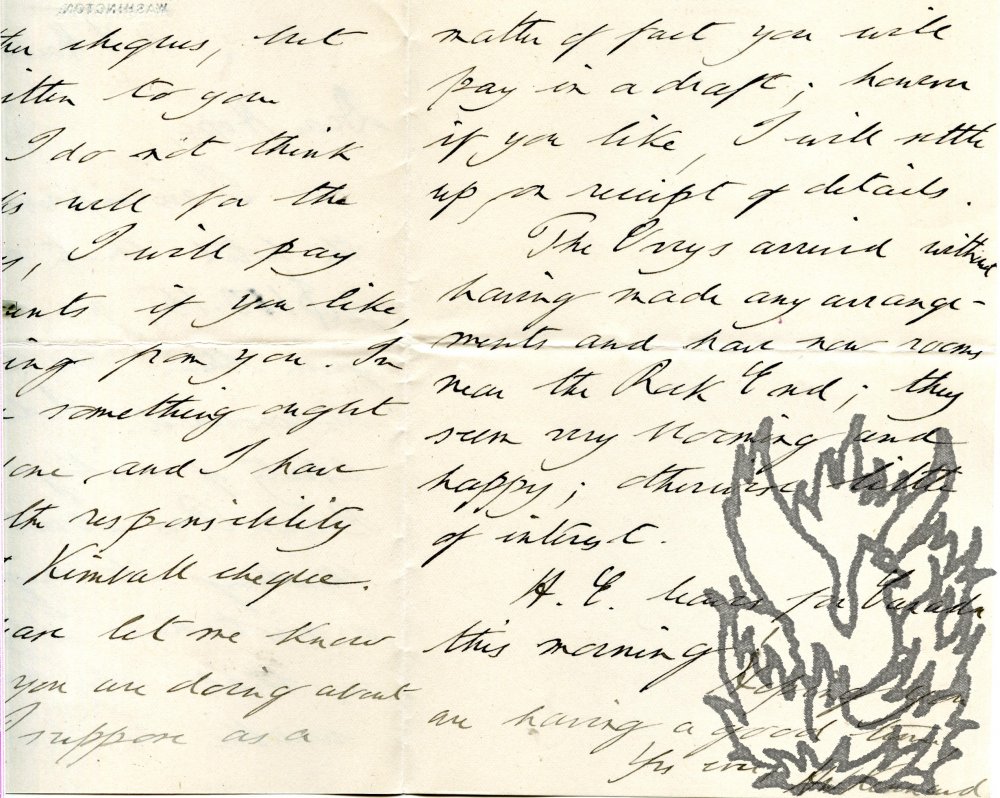 WASHINGTON.
cheques, but
itten to you
I do not think
will for the
I will pay
unts if you like,
ing from you. In
something ought
one and I have
the responsibility
Kimball cheque.
ease let me know
you are doing about
I suppose as a
matter of fact you will
pay in a draft; however
if you like, I will settle
up on receipt of details.
The Urrys arrived without
having made any arrange-
ments and have now rooms
near the Rock End; they
seem very blooming and
happy; otherwise little
of interest.
H. E. leaves for Canada
this morning
Hoping you
are having a good time
Yrs ever